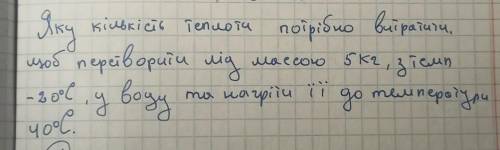 Яку кількість теплоти потрібно витратити,
щоб перетворити лід массою 5кг, з темп
-20°C, у воду та нагріти її до температури
40°C.